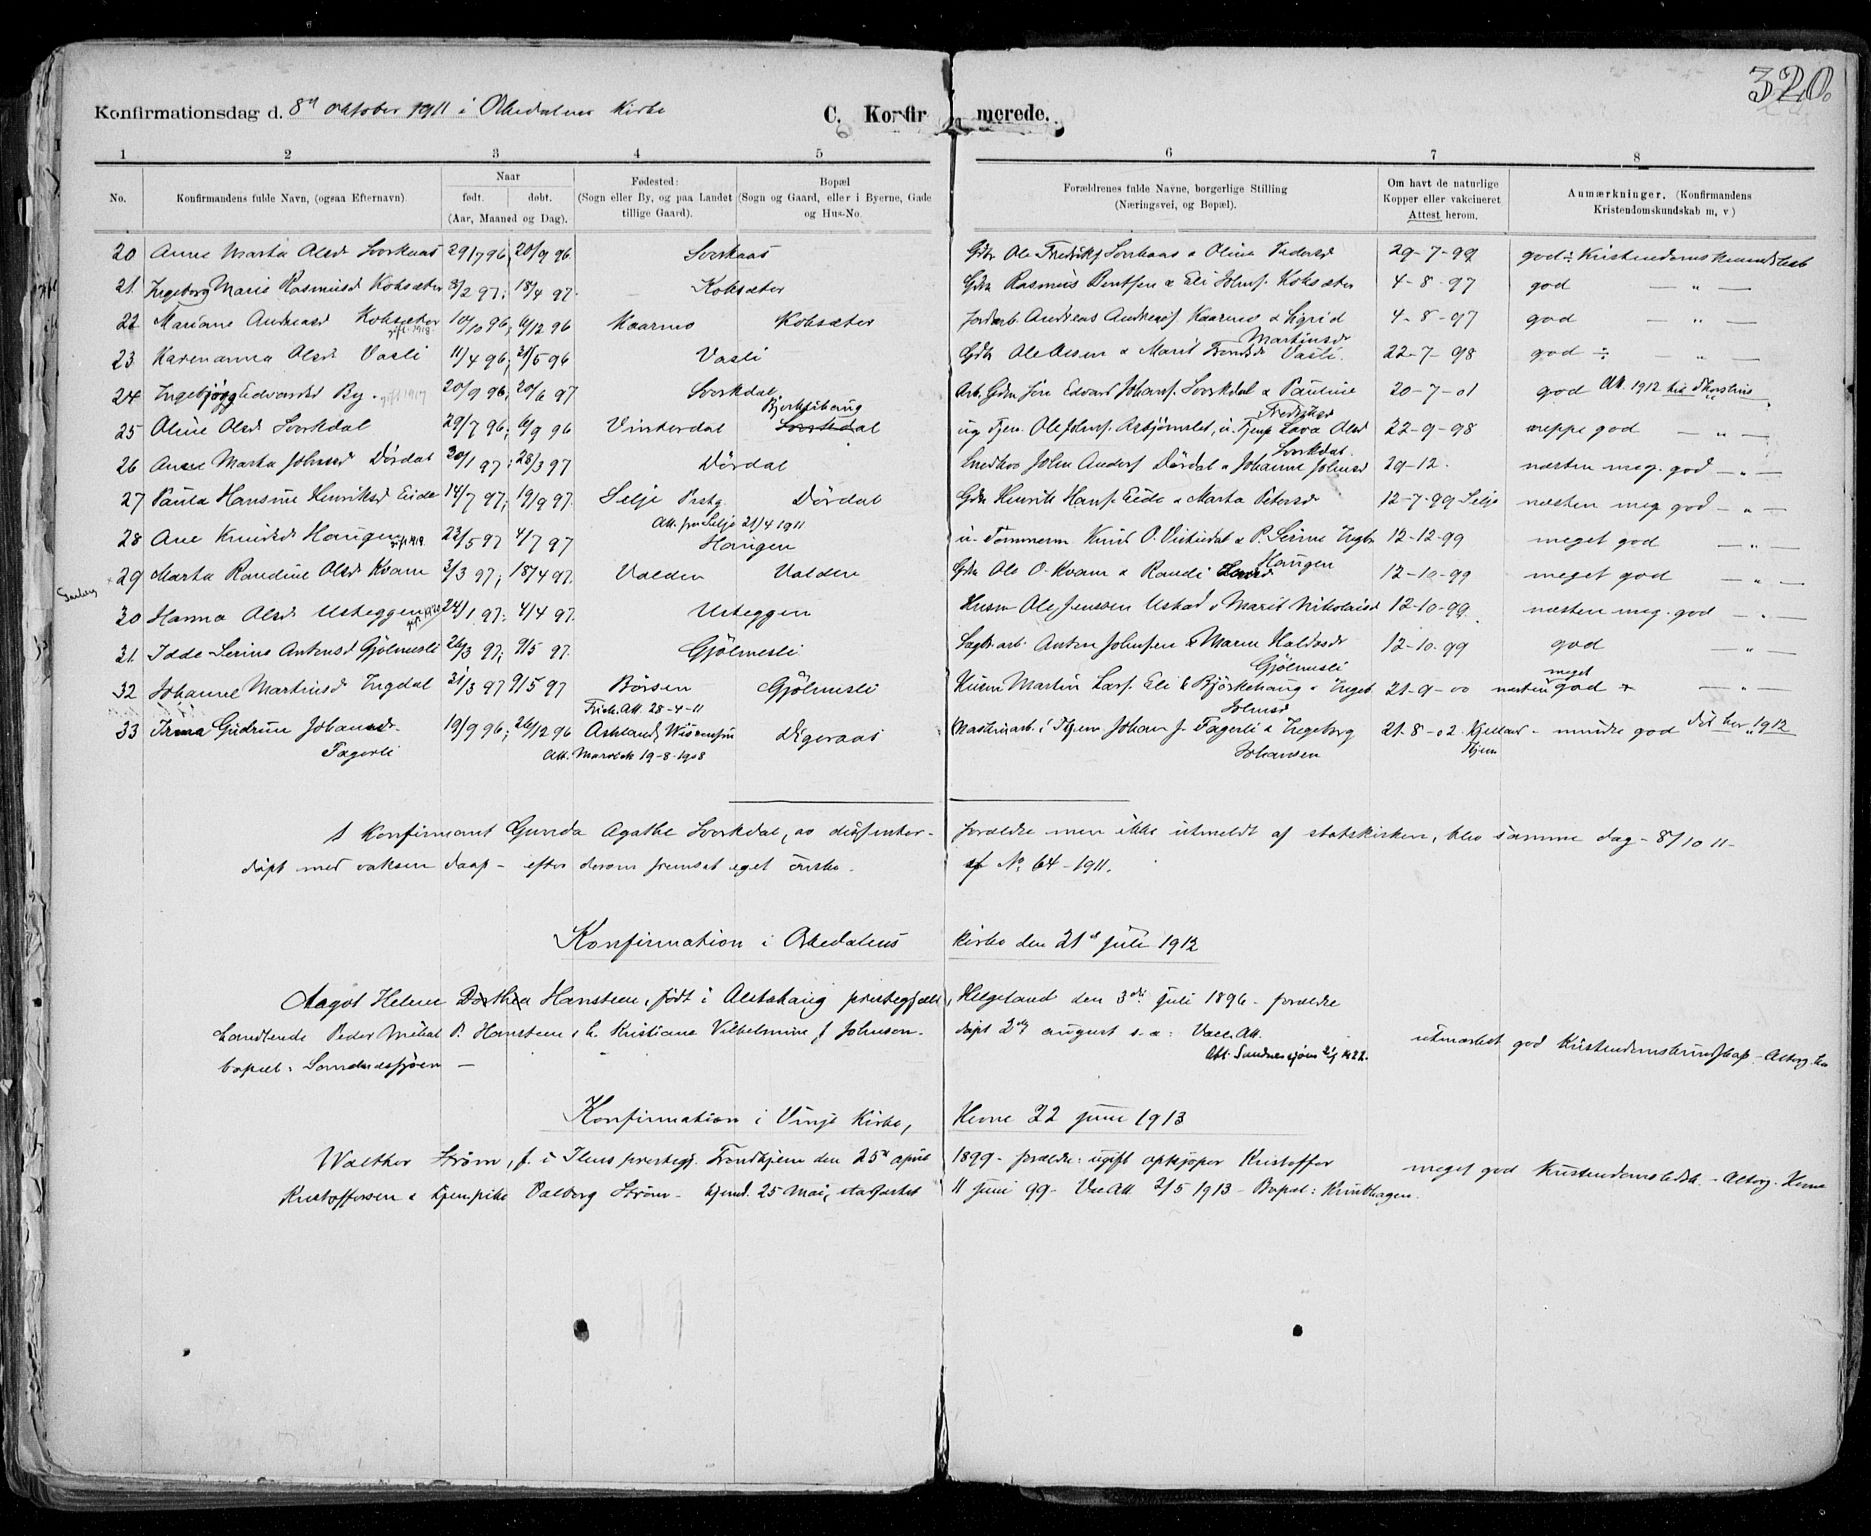 320
Konfirmationsdag d. 8de oktober 1911 i Orkedalens Kirke C. Konfirmerede.
1 2 3 4 5 6 7 8
No. Konfirmandens fulde Navn, (ogsaa Efternavn) Naar født. døbt. (Aar, Maaned og Dag). Fødested: (Sogn eller By, og paa Landet tillige Gaard). Bopæl (Sogn og Gaard, eller i Byerne, Gade og Hus-No. Forældrenes fulde Navne, borgerlige Stilling (Næringsvei, og Bopæl). Om havt de naturlige Kopper eller vakcineret Attest herom. Anmærkninger. (Konfirmandens Kristendomskundskab m, v)
20 Anne Marta Olsd Svorkaas 29/7 96; 20/9 96 Svorkaas Gdbr Ole Fredriks. Svorkaas & Oline Pedersd 29-7-99 god ÷ Kristendomskundskab
21. Ingeborg Marie Rasmusd Koksæter /2 97; 18/4 97. Koksæter Gdbr Rasmus Bentsen & Eli Johnsd. Koksæter 4-8-97 god — „ —
22 Mariane Andreasd Koksæter gift 1918. 10/10 96; 6/12 96 Kaarmo Koksæter Jordarb. Andreas Andreas. Kaarmo & Sigrid Martinusd 4-8-97 god — „ —
23 Karenanna Olsd Vasli 11/4 96; 31/5 96 Vasli Gdbr Ole Olsen & Marit Trondsd Vasli. 22-7-98 god ÷ — „ —
24 Ingebjørg Edvardsd By. gift 1917 20/9 96; 20/6 97 Svorkdal Arb. Gdbr Jøn Edvard Johans. Svorkdal & Pauline Fredriksd 20-7-01 god Att. 1912 „ —
25 Oline Olsd Svorkdal 29/7 96; 6/9 96 Vinterdal Bjørklihaug Svorkdal ug Tjen. Ole Johns. Asbjørnslet, u. Tjenp Lava Olsd Svorkdal 22-9-98 neppe god — „ —
26 Anne Marta Johnsd Dørdal 20/1 97; 28/3 97 Dørdal Snedker John Anders. Dørdal & Johanne Johnsd 29-12. næsten meg. god — „ —
27 Paula Hansine Henriksd Eide 14/7 97; 19/9 97. Selje Prstg. Att. fra Selje 21/4 1911 Dørdal Gdbr Henrik Hans. Eide & Marta Petersd 12-7-99 Selje næsten meg god — „ —
28 Ane Knudsd Haugen gift 1919. 23/5 97 4/7 97 Haugen u. Tømmerm Knud O. & P. Serine Ingbr Haugen 12-12-99 meget god — „ —
29 Marta Randine Olsd Kvam 3/3 97; 18/4 97. Valden Valden Gdbr Ole O. Kvam & Randi Larsd 12-10-99 meget god — „ —
30 Hanna Olsd Usteggen 24/1 97: 4/4 97. Usteggen Husm Ole Jenssen Ustad & Marit Nikolaisd 12-10-99. næsten meg. god — „ —
31. Idde Serine Antonsd Gjølmesli 26/3 97; 9/5 97. Gjølmesli Sagbr. arb. Anton Johnsen & Maren Haldosdr Gjølmesli 12-10-99 god „ —
32 Johanne Martinusd Ingdal 21/3 97 9/5 97 Børsen Frieh. Att. 28-4-11 Gjølmesli Husm Martin Lars. Eli & Bjørkehaug & Ingeb. Johnsd 21-9-00 næsten meget god — „ —
33 Irma Gudrun Johansdr Fagerli 19/9 96; 26/12 96 Ashland, Wisconsin Att. 19-8-1908 Digeraas Maskinarb. i Thjem Johan J. Fagerli & Ingeborg Johansen 21-8-02 Kjelland Thjem mindre god Did her 1912
1 Konfirmant Gunda Agathe Svorkdal, av dissenter-forældre men ikke utmeldt af statskirken, blev samme dag - 8/10 11 -
døpt med voksen daap - efter derom fremsat eget ønske. cf No 64 - 1911.
Konfirmation i Orkedalens Kirke den 21de juli 1912
Aagot Helene Dorthea Hansteen, født i Alstahaug prestegjæld, Helgeland den 3die juli 1896 - forældre
handlende Peder Mikal P. Hansteen & h. Kristiane Vilhelmine f. Johnsen. døpt 2den august s. a: Vacc. Att. utmærket god Kristendomskundskap - Altbog.
bopæl: Sandnessjøen — Att. Sandnessjøen 1922.
Konfirmation i Vinje Kirke, Hevne 22 juni 1913
Walther Strøm, f. i Ilens prestegj. Trondhjem den 25de april 1899 - forældre: ugift opkjøper Kristoffer meget god Kristendomsk. - Altbog. Hevne
Kristoffersen & tjenpike Valborg Strøm - hjemd. 25 Mai, stadfæstet 11 juni 99 - Vac Att 2/5 1913 - Bopæl: Krinkhagen.